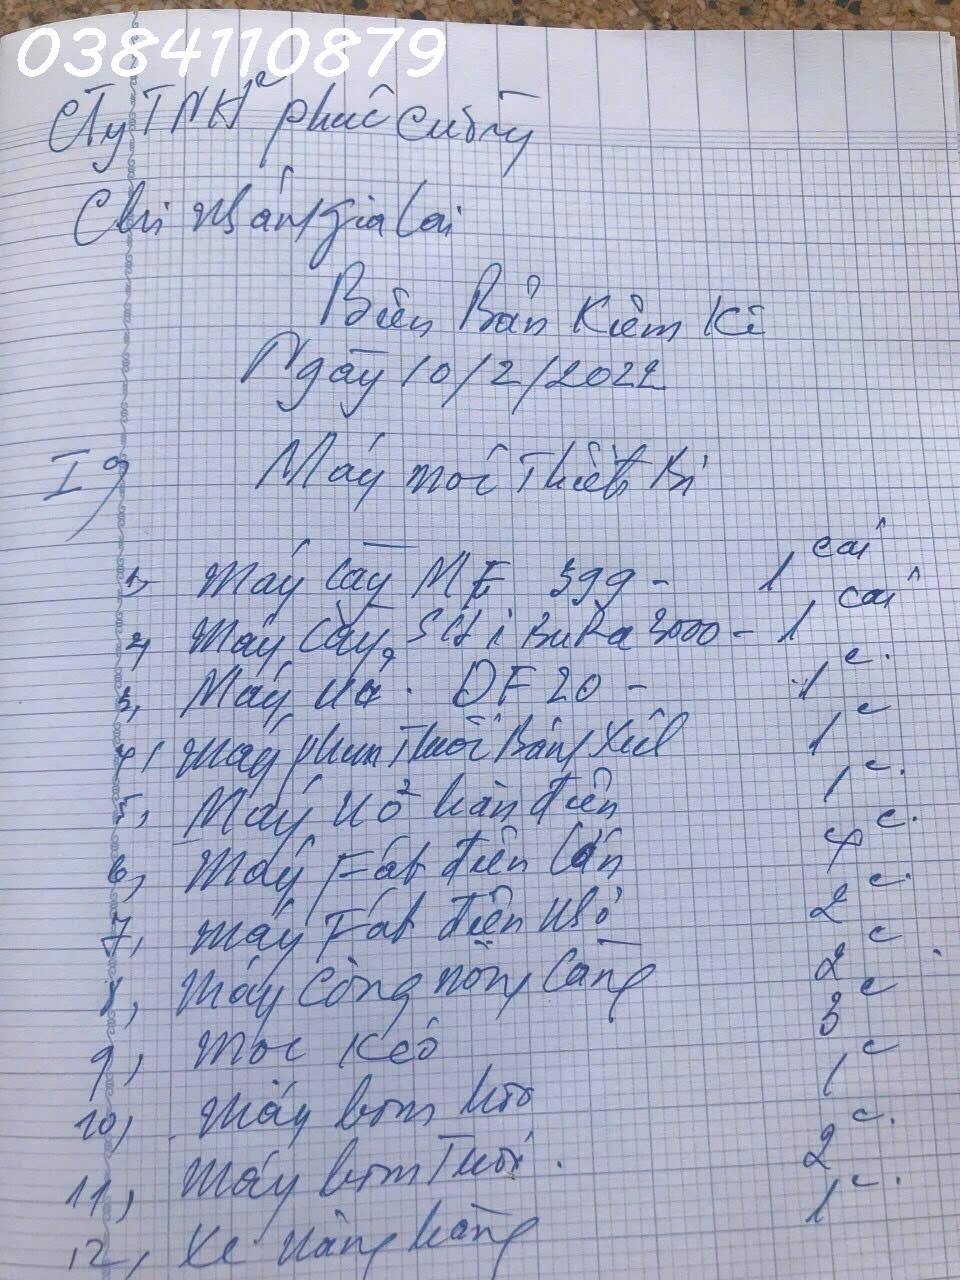 0384110879
CTy TNHH phúc Cường
Chi nhánh gia lai
Biên Bản Kiểm Kê
Ngày 10/2/2022
I, Máy móc Thiết Bị
1, Máy Cày MF 399 - 1 cái
2, Máy Cày SHiBuRa 3000 - 1 cái
3, Máy DF 20 - 1 c.
4, Máy phun Thuốc Bánh Xích 1 c
5, Máy nổ hàn điện 1 c.
6, Máy Fát điện lớn 4 c.
7, Máy Fát điện nhỏ 2 c.
8, Máy Công nông Càng 2 c
9, Moc Kéo 3 c
10, Máy bơm hơi 1 c
11, Máy bơm Tưới. 2 c.
12, Xe nâng hàng 1 c.